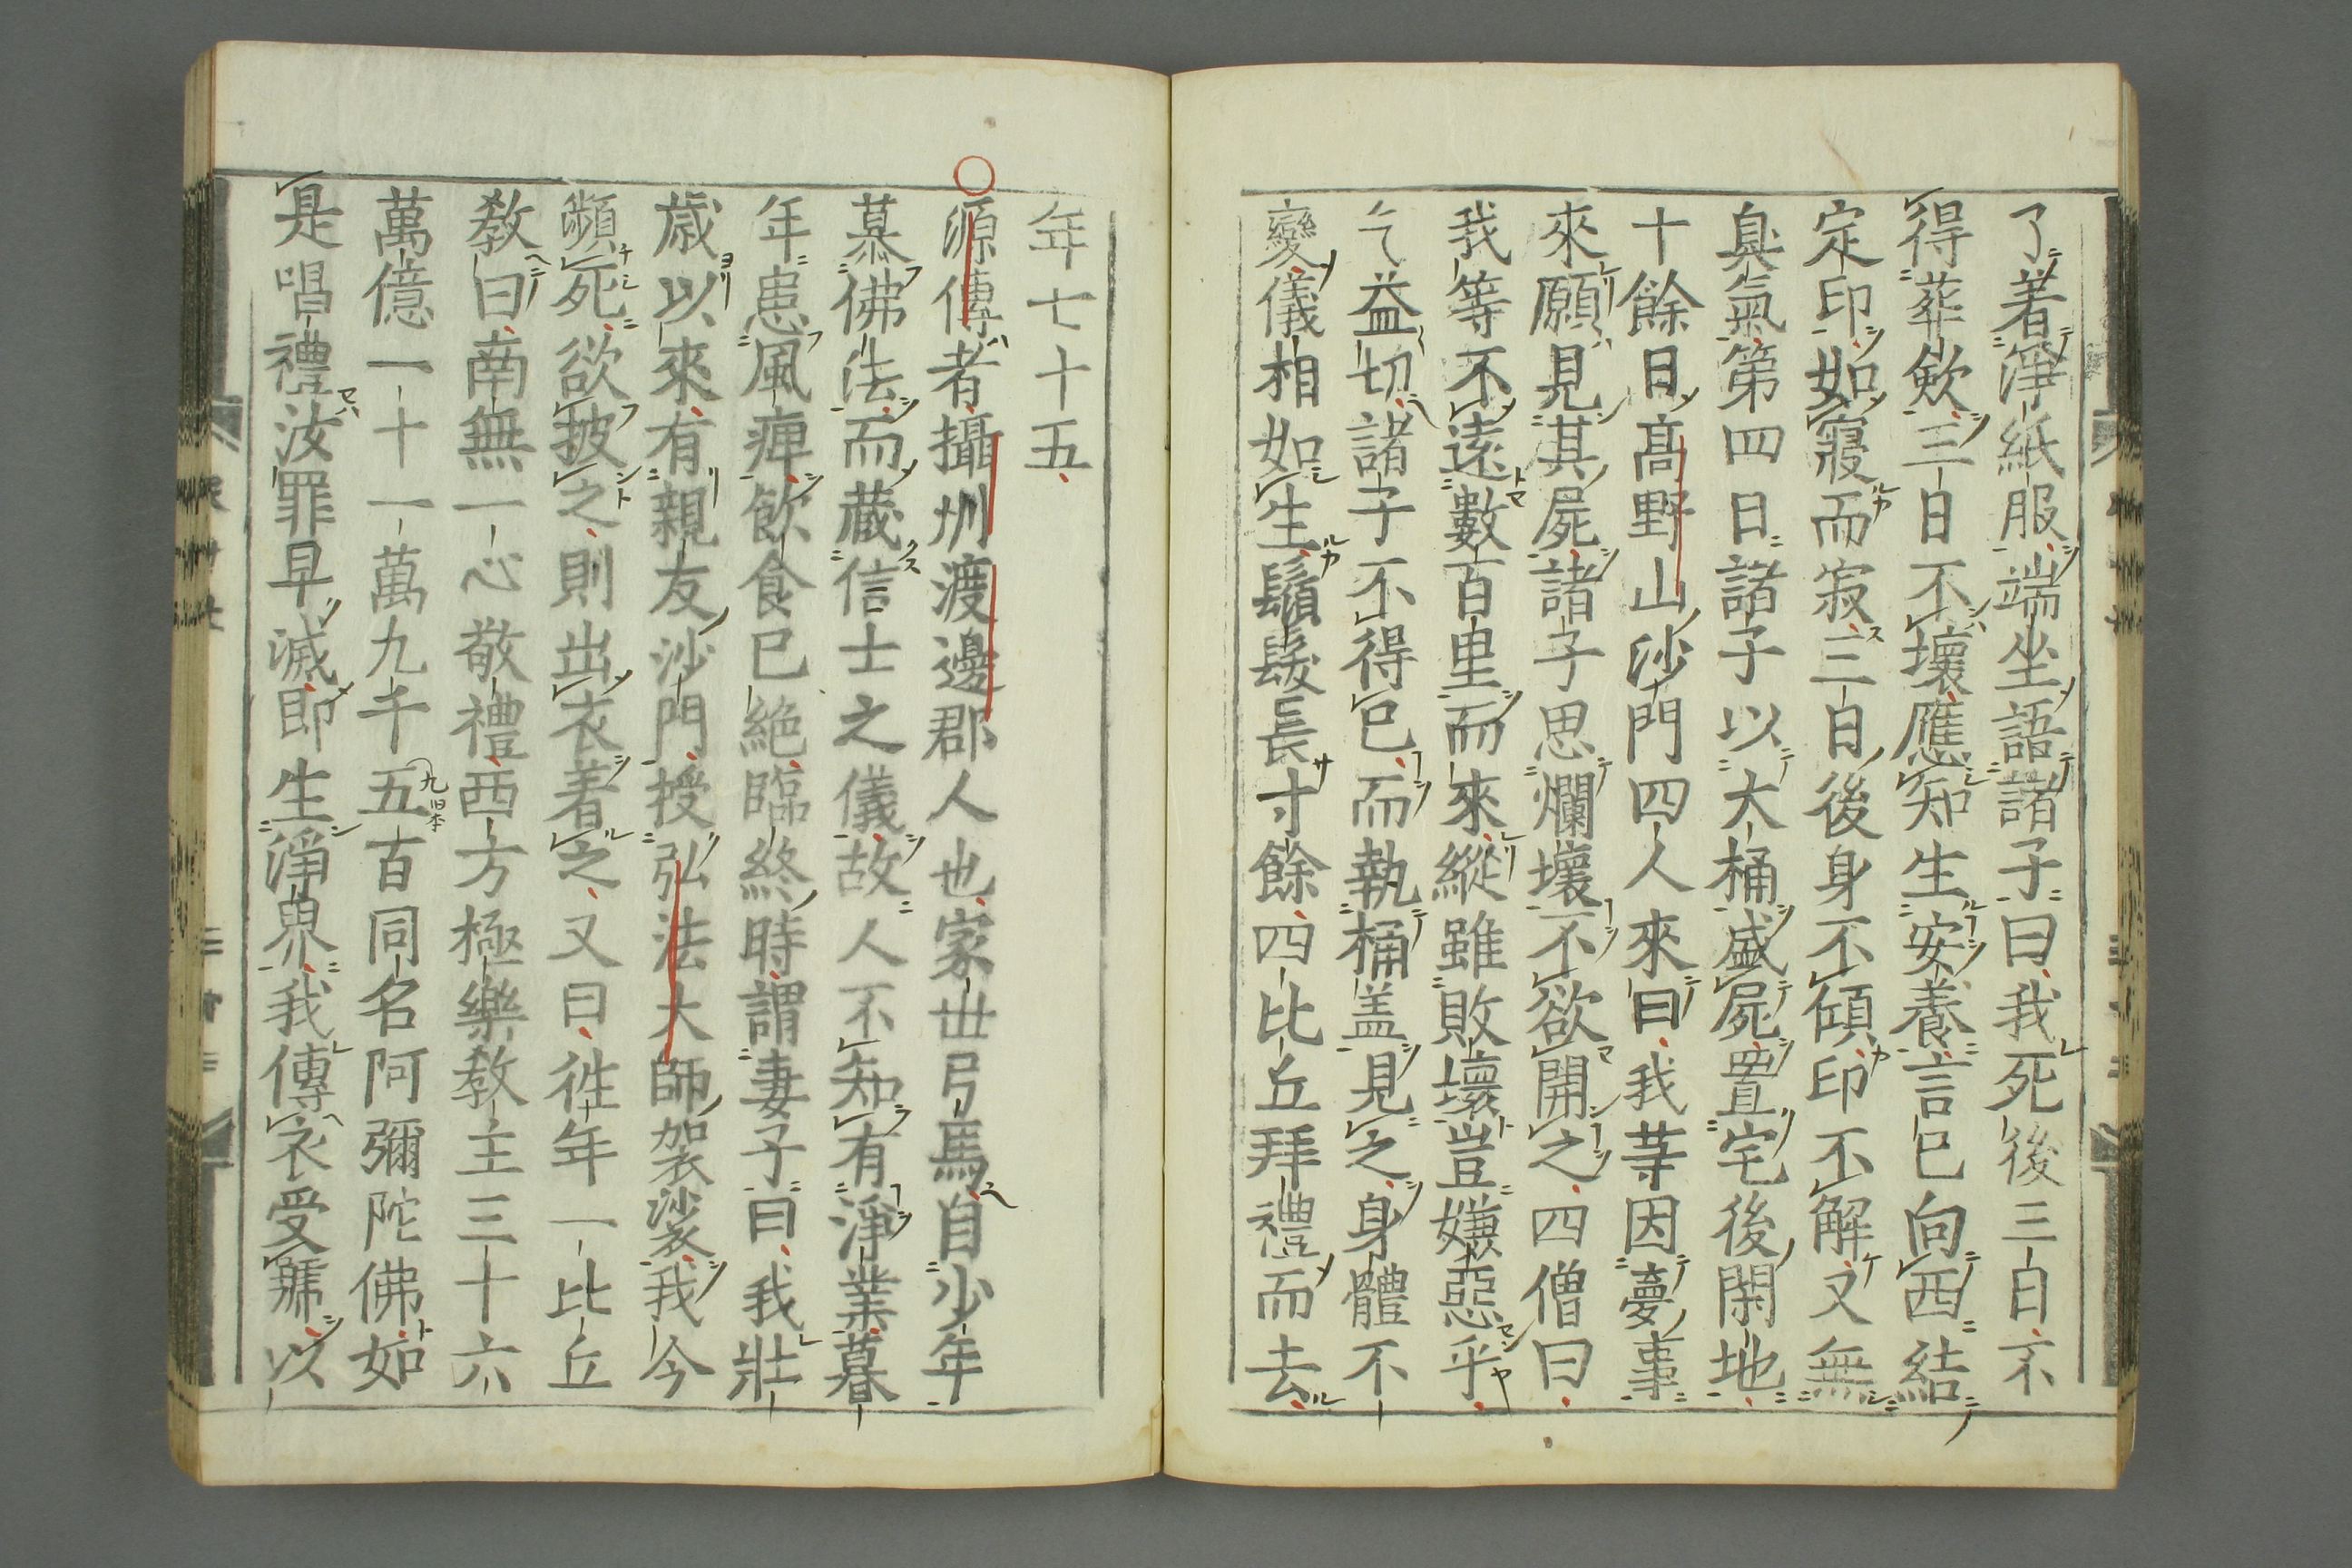 了著淨紙服端坐語諸子曰我死後三日不
得葬歛三日不壞應知生安養言已向西結
定印如寢而寂三日後身不傾印不解又無
臭氣第四日諸子以大桶盛屍置宅後閑地
十餘日髙野山沙門四人來曰我等因夢事
來願見其屍諸子思爛壞不欲開之四僧曰
我等不遠數百里而來縱雖敗壞豈嫌惡乎
乞益切諸子不得已而執桶盖見之身體不
變儀相如生鬚髮長寸餘四比丘拜禮而去
年七十五
源傳者攝州渡邊郡人也家世弓馬自少年
慕佛法而蔵信士之儀故人不知有淨業暮
年患風痺飲食已絶臨終時謂妻子曰我壯
歳以來有親友沙門授弘法大師袈裟我今
瀕死欲披之則出衣著之又曰徃年一比丘
教曰南無一心敬禮西方極樂教主三十六
萬億一十一萬九千五百同名阿彌陀佛如
九旧本
是唱禮汝罪早滅即生淨界我傳衣受號以